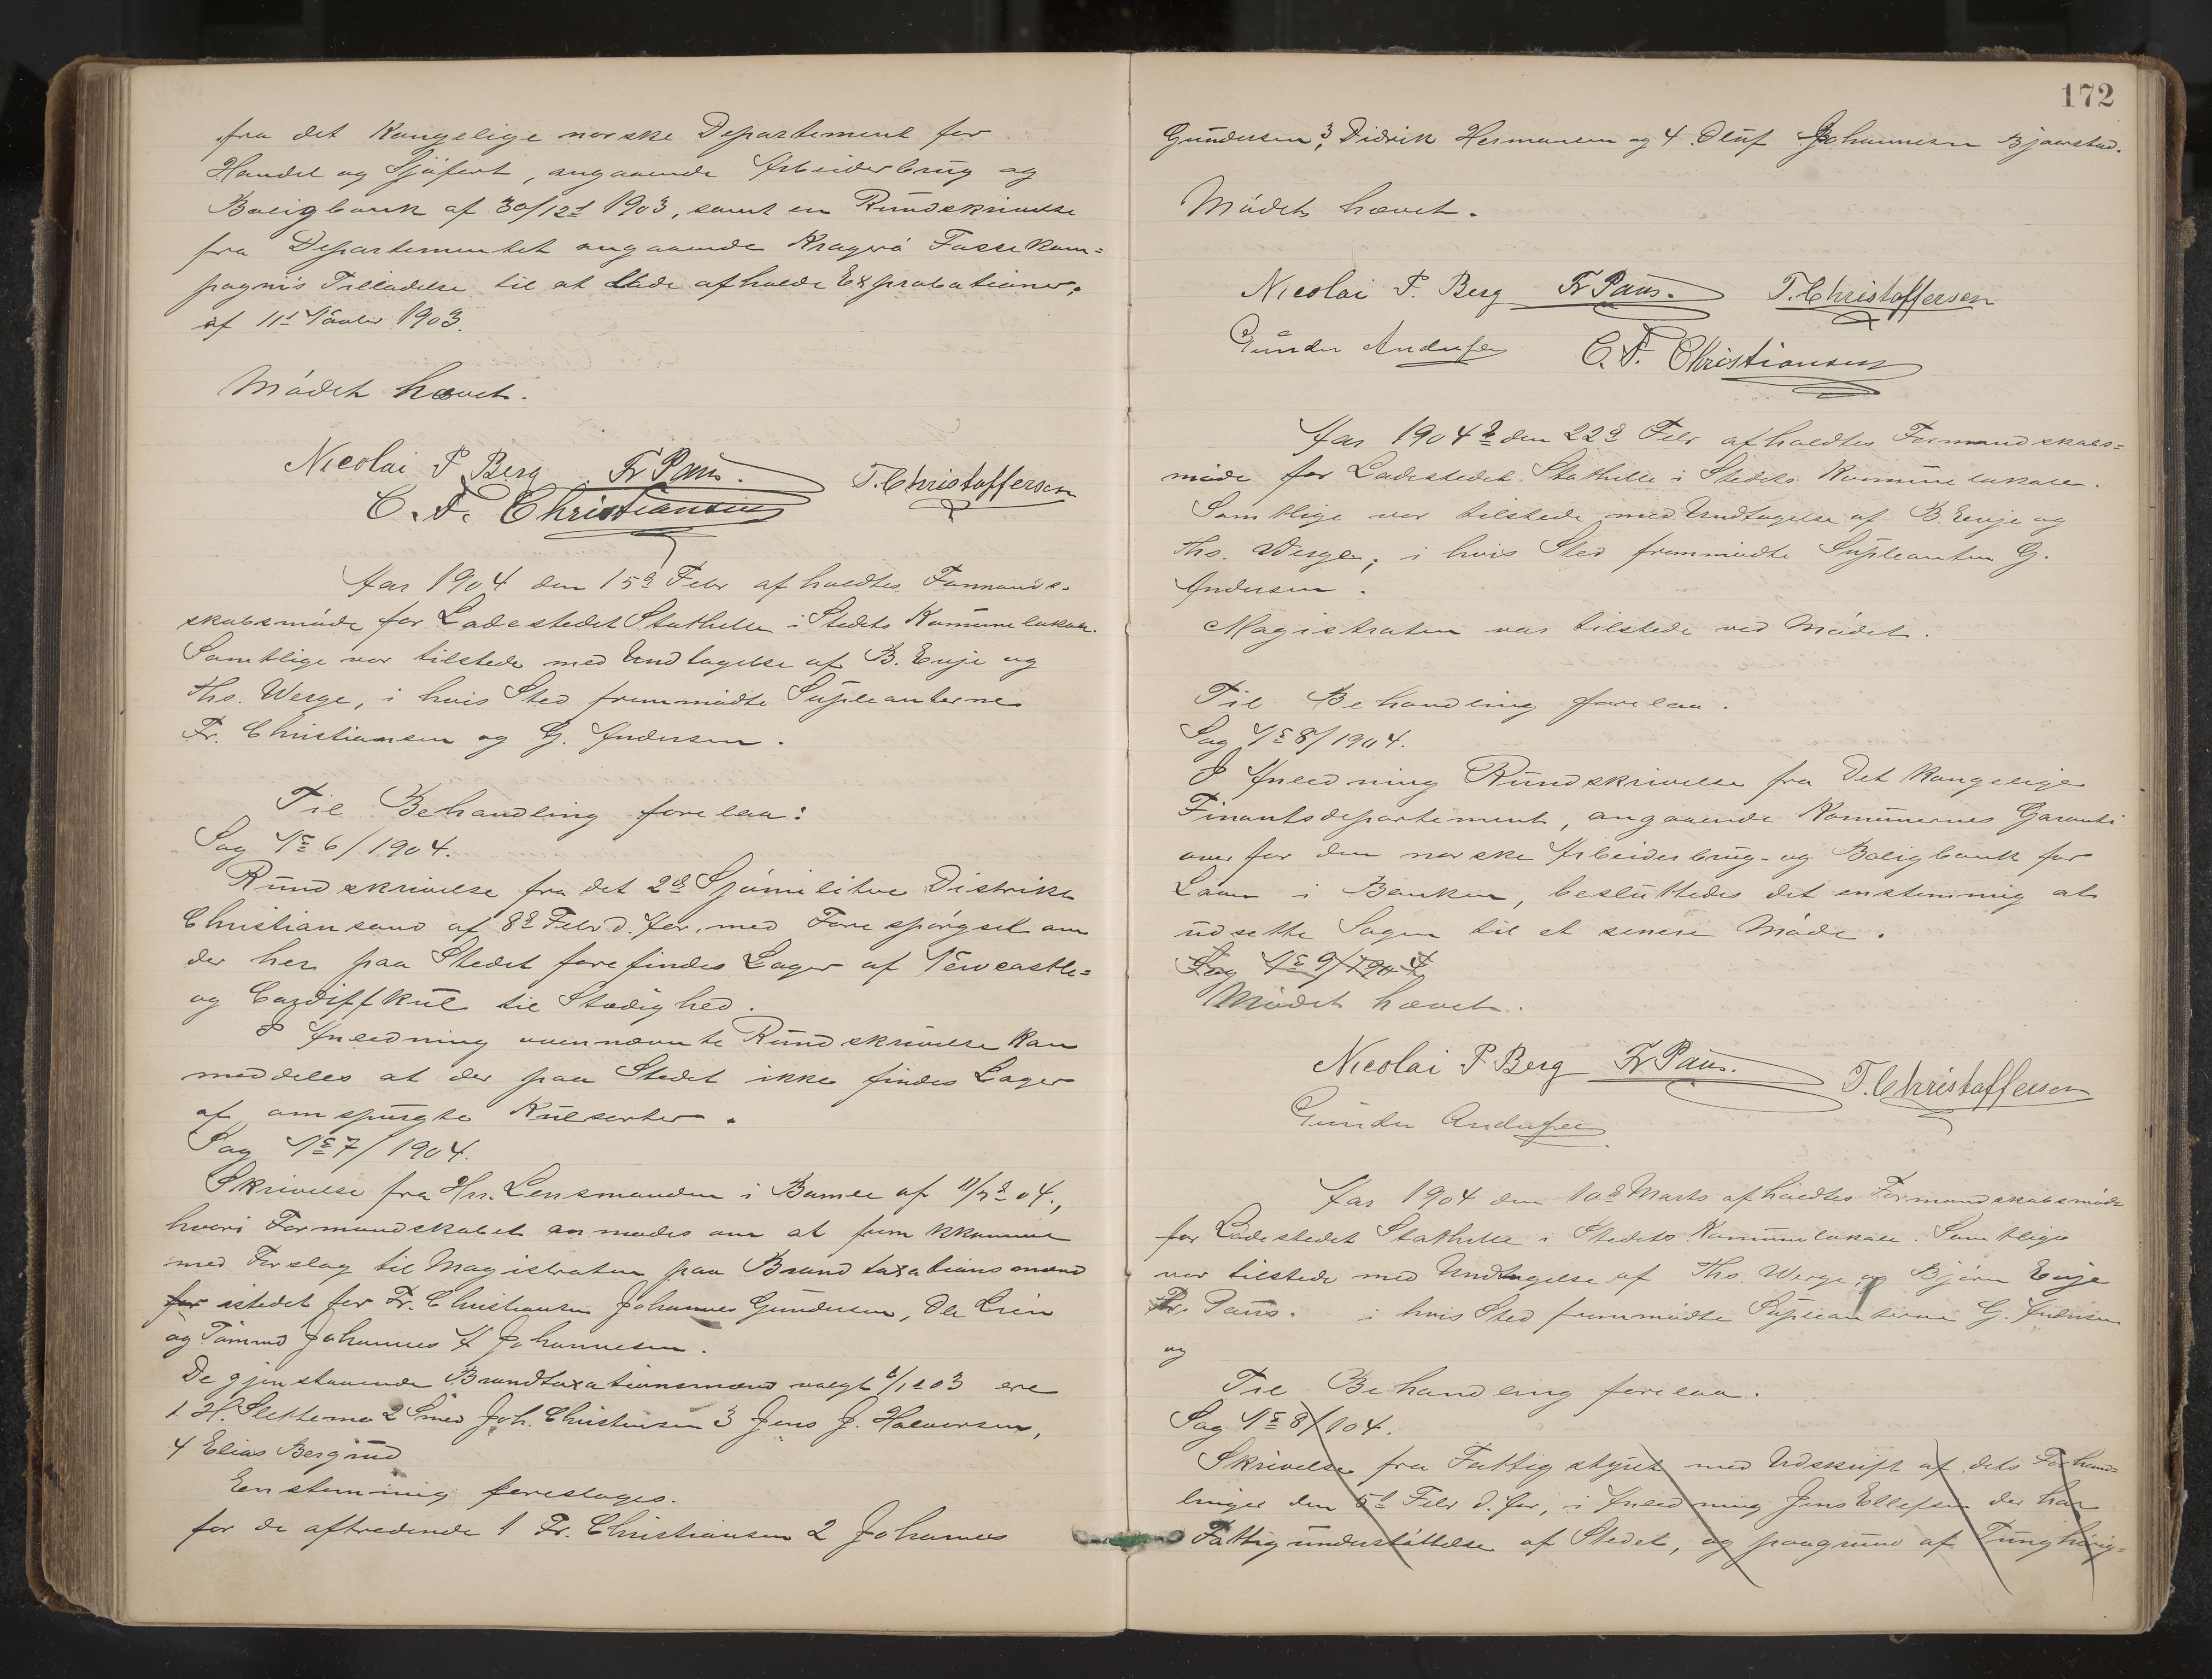 fra det Kongelige norske Departement for
Handel og Sjöfart, angaaende Arbeiderbrug og
Boligbank af 30/12 1903, samt en Rundskrivelse
fra Departementet angaaende Kragerö Fosse Kom=
pagnis Tilladelse til at lade afholde Expropriationer,
af 11 1903.
Mödet hævet.
Nicolai P Berg Fr Paus. T. Christoffersen
C. F. Christiansen
Aar 1904 den 15d Febr afholdtes Formands-
skabsmöde for Ladestedet Stathelle i Stedets Kommunelokale.
Samtlige var tilstede med Undtagelse af B. Enje og
Ths. Werge, i hvis Sted fremmödte Supleanterne
Fr. Christiansen og G. Andersen.
Til Behandling forelaa:
Sag No 6/1904.
Rundskrivelse fra det 2det Sjömilitære Distrikt
Christiansand af 8d Febr d. Aar, med Forespörgsel om
der her paa Stedet forefindes Lager af Newcastle=
og Cardiffkul til Stadighed.
I Anledning ovennævnte Rundskrivelse kan
meddeles at der paa Stedet ikke findes Lager
af omspurgte Kulsorter.
Sag No 7/1904.
Skrivelse fra Hr. Lensmanden i Bamle af 11/2 04,
hvori Formandskabet anmodes om at fremkkomme
med Forslag til Magistraten paa Brandtaxationsmænd
for istedet for Fr. Christiansen Johannes Gundersen, Ole
og Tömmd Johannes A Johannesen.
De gjenstaaende Brandtaxationsmænd valgt 03 ere
1. H. Slettemo 2 Smed Joh. Christensen 3 Jens J. Halvorsen,
4 Elias Bergrud
Enstemmig foreslages.
for de aftredende 1 Fr. Christiansen 2 Johannes
172
Gundersen, 3 Didrik Hermansen og 4. Oluf Johannesen Bjaerstad.
Mödet hævet.
Nicolai P. Berg Fr Paus. T. Christoffersen
Gunder Andersen C. F. Christiansen
Aar 1904 den 22d Febr afholdtes Formandskabs=
möde for Ladestedet Stathelle i Stedets Kommunelokale.
Samtlige var tilstede med Undtagelse af B. Enje og
Ths. Werge, i hvis Sted fremmödte Supleanten G.
Andersen.
Magistraten var tilstede ved Mödet.
Til Behandling forelaa.
Sag No 8/1904.
I Anledning Rundskrivelse fra Det Kongelige
Finantsdepartement, angaaende Kommunernes Garanti
over for den norske Arbeiderbrug- og Boligbank for
Laan i Banken, besluttedes det enstemmig at
udsette Sagen til et senere Möde.
Sag No 9/1904
Mödet hævet.
Nicolai P Berg Fr Paus. T. Christoffersen
Gunder Andersen
Aar 1904 den 10d Marts afholdtes Formandskabsmöde
for Ladestedet Stathelle i Stedets Kommunelokale. Samtlige
var tilstede med Undtagelse af Ths. Werge, og Björn Enje
Fr. Paus. i hvis Sted fremmödte Supleanterne G. Andersen
og
Til Behandling forelaa.
Sag No 8/1904.
Skrivelse fra Fattigstyret med Udskrift af dets Forhand=
linger den 5t Febr d. Aar, i Anledning Jens Ellefsen der har
Fattigunderstöttelse af Stedet, og paagrund af Tunghörig=